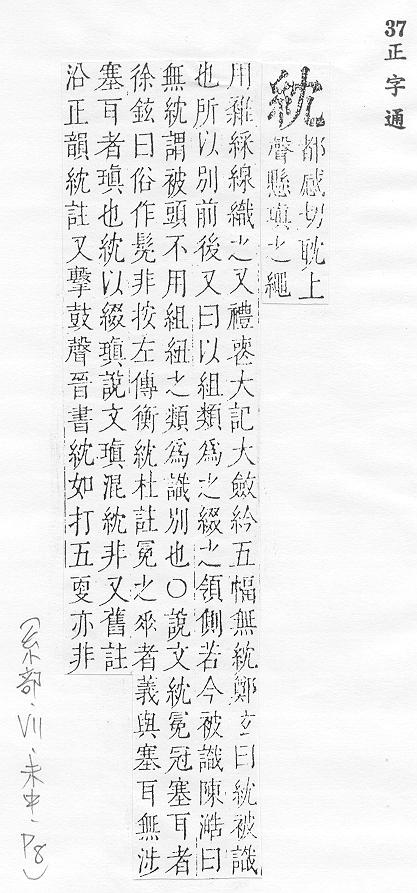 37正字通
紞
都感切耽上
聲懸瑱之繩
用雜綵線織之又禮喪大記大斂紟五幅無紞鄭玄曰紞被識
也所以別前後又曰以組類爲之綴之領側若今被識陳澔曰
無紞謂被頭不用組紐之類爲識別也○說文紞冕冠塞耳者
徐鉉曰俗作髧非按左傳衡紞杜註冕之𠂹者義與塞耳無涉
塞耳者瑱也紞以綴瑱說文瑱混紞非又舊註
沿正韻紞註又擊鼓聲晉書紞如打五更亦非
(糸部.VII.未中.P8)